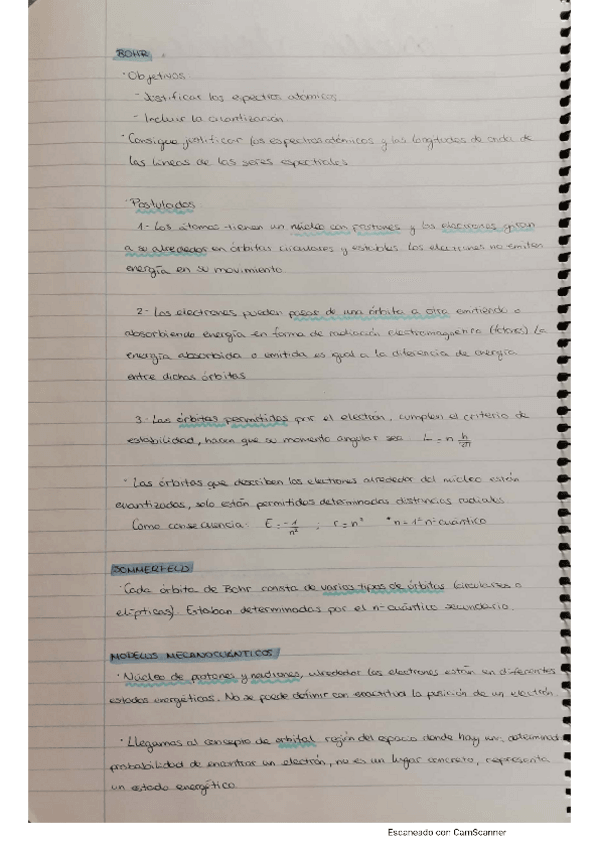 BOHR.
· Objetivos
- Justificar los espectros atómicos
- Incluir la cuantización
· Consigue justificar los espectros atómicos y las longitudes de onda de
las líneas de las series espectrales
· Postulados
1- Los átomos tienen un núcleo con protones y los electrones giran
a su alrededor en órbitas circulares y estables. Los electrones no emiten
energía en su movimiento
2- Los electrones pueden pasar de una órbita a otra emitiendo o
absorbiendo energía en forma de radiación electromagnética (fotones) La
energía absorbida o emitida es igual a la diferencia de energía
entre dichas órbitas
3- Las órbitas permitidas por el electrón, cumplen el criterio de
estabilidad, hacen que su momento angular sea L = n h/2π
· Las órbitas que describen los electrones alrededor del núcleo están
cuantizadas, solo están permitidas determinadas distancias radiales
Como consecuencia: E = -1/n² ; r = n² *n = 1º nº cuántico
SOMMERFELD
· Cada órbita de Bohr consta de varios tipos de órbitas (circulares o
elípticas) Estaban determinadas por el nº cuántico secundario.
MODELOS MECANOCUÁNTICOS
· Núcleo de protones y neutrones, alrededor los electrones están en diferentes
estados energéticos. No se puede definir con exactitud la posición de un electrón.
· Llegamos al concepto de orbital región del espacio donde hay una determinad
probabilidad de encontrar un electrón, no es un lugar concreto, representa
un estado energético
Escaneado con CamScanner